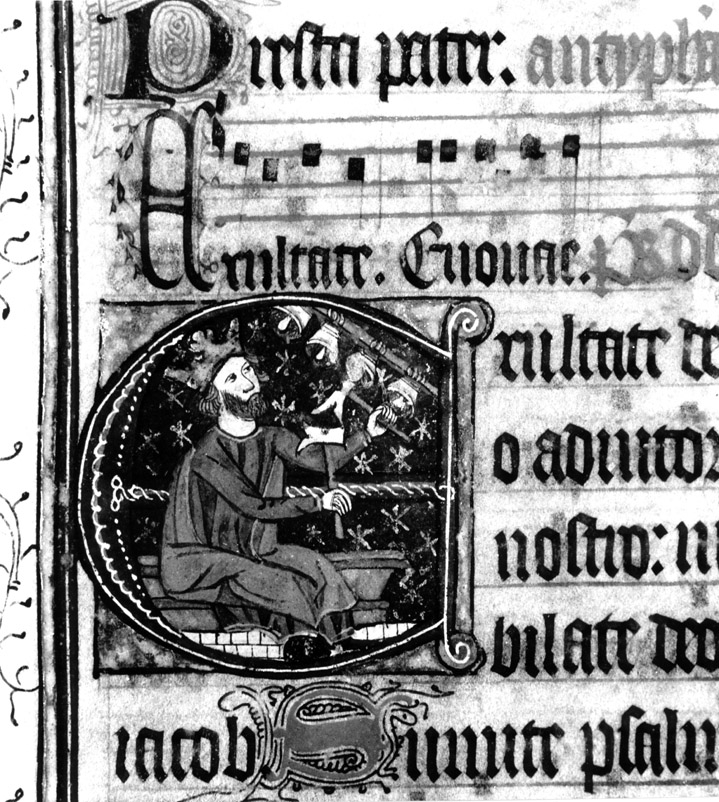 Presta pater. antypha
Exultate. Euouae. ps dd
Exultate de
o adiutor
nostro: iu
bilate deo
iacob Sumite psalm